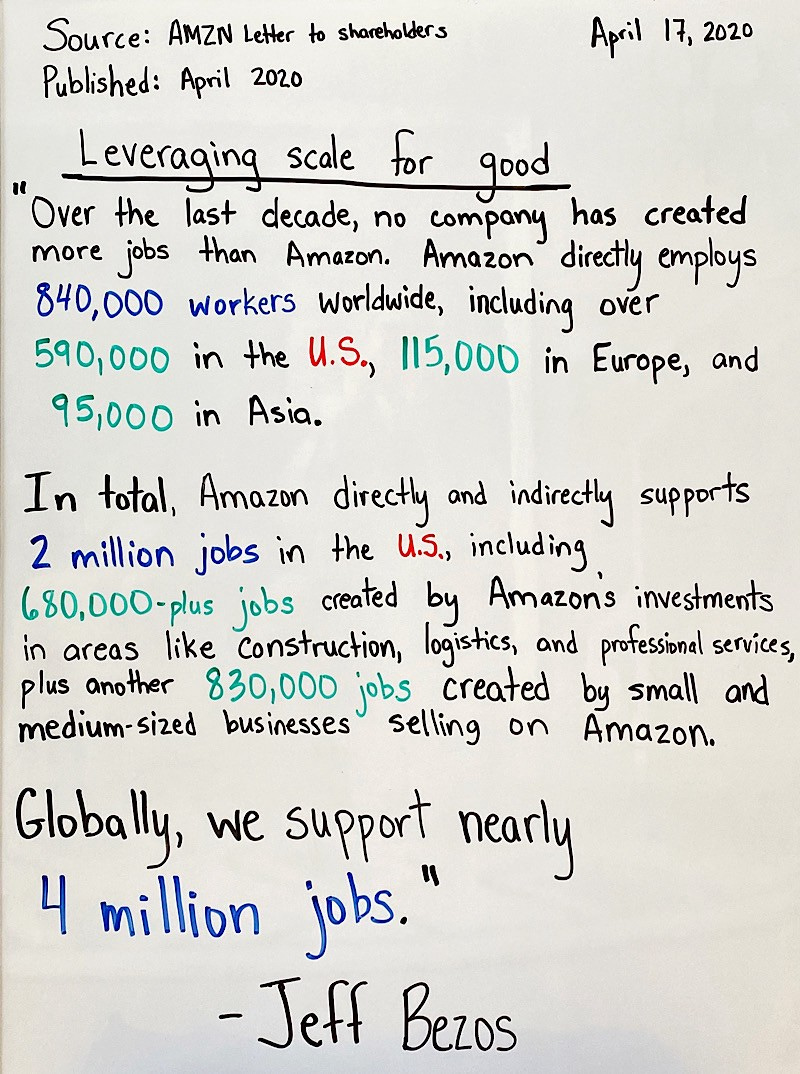 Source: AMZN Letter to shareholders
April 17, 2020
Published: April 2020
Leveraging scale for good
"Over the last decade, no company has created
more jobs than Amazon. Amazon directly employs
840,000 workers worldwide, including over
590,000 in the U.S., 115,000 in Europe, and
95,000 in Asia.
In total, Amazon directly and indirectly supports
2 million jobs in the U.S., including
680,000-plus jobs created by Amazon's investments
in areas like construction, logistics, and professional services,
plus another 830,000 jobs created by small and
medium-sized businesses selling on Amazon.
Globally, we support nearly
4 million jobs."
- Jeff Bezos